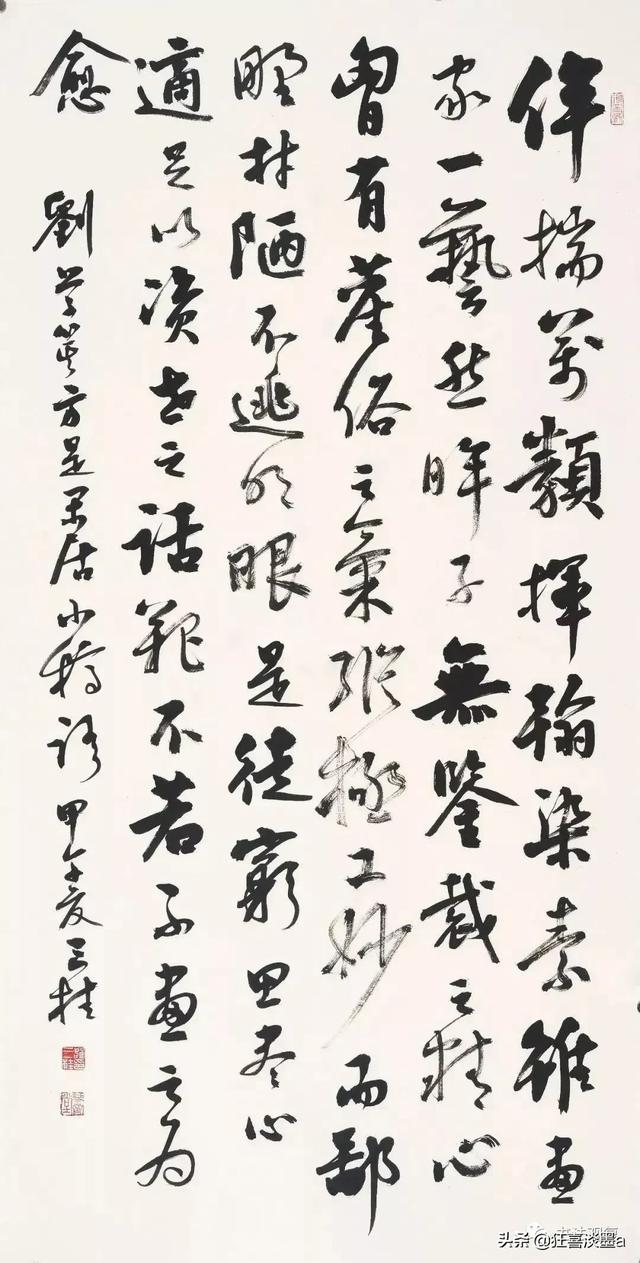 侔揣萬類揮翰染素雖畫
家一藝然眸子無鑒裁之精心
胷有塵俗之氣縱極工妙而鄙
野村陋不逃明眼是徒窮思盡心
適足以資世之話靶不若不畫之為
愈
劉學箕方是閑居小稿語甲午夏三桂
头条 @狂喜淡墨a